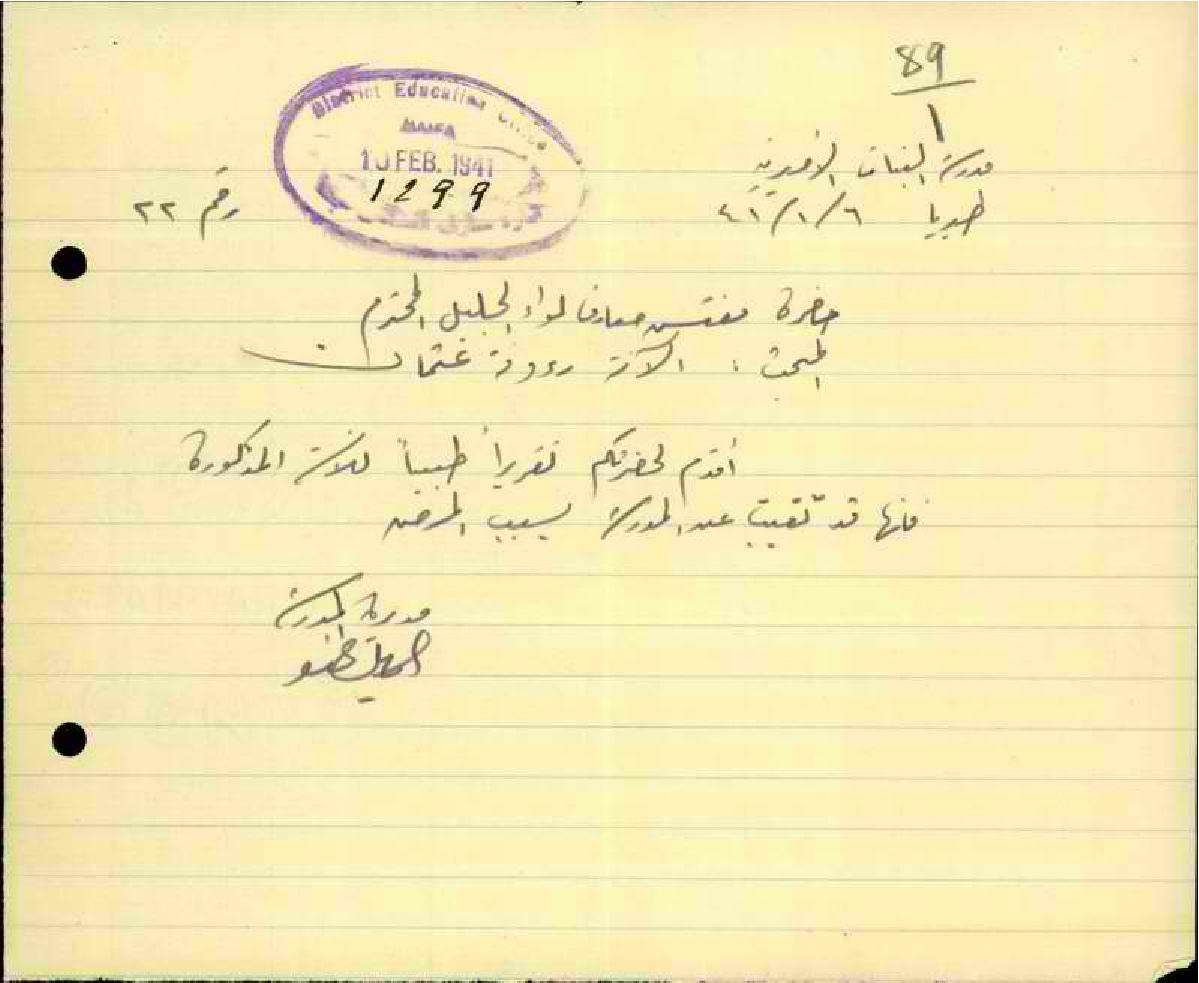 89
1
District Education Office
HAIFA
10 FEB. 1941
1299
مدرسة البنات الأميرية
طبريا ٦/١/٤١
رقم ٢٢
حضرة مفتش معارف لواء الجليل المحترم
المبحث : الآنسة رءوفة عثمان
أقدم لحضرتكم تقريراً طبياً للآنسة المذكورة
فإنها قد تغيبت عن المدرسة بسبب المرض
مديرة المدرسة